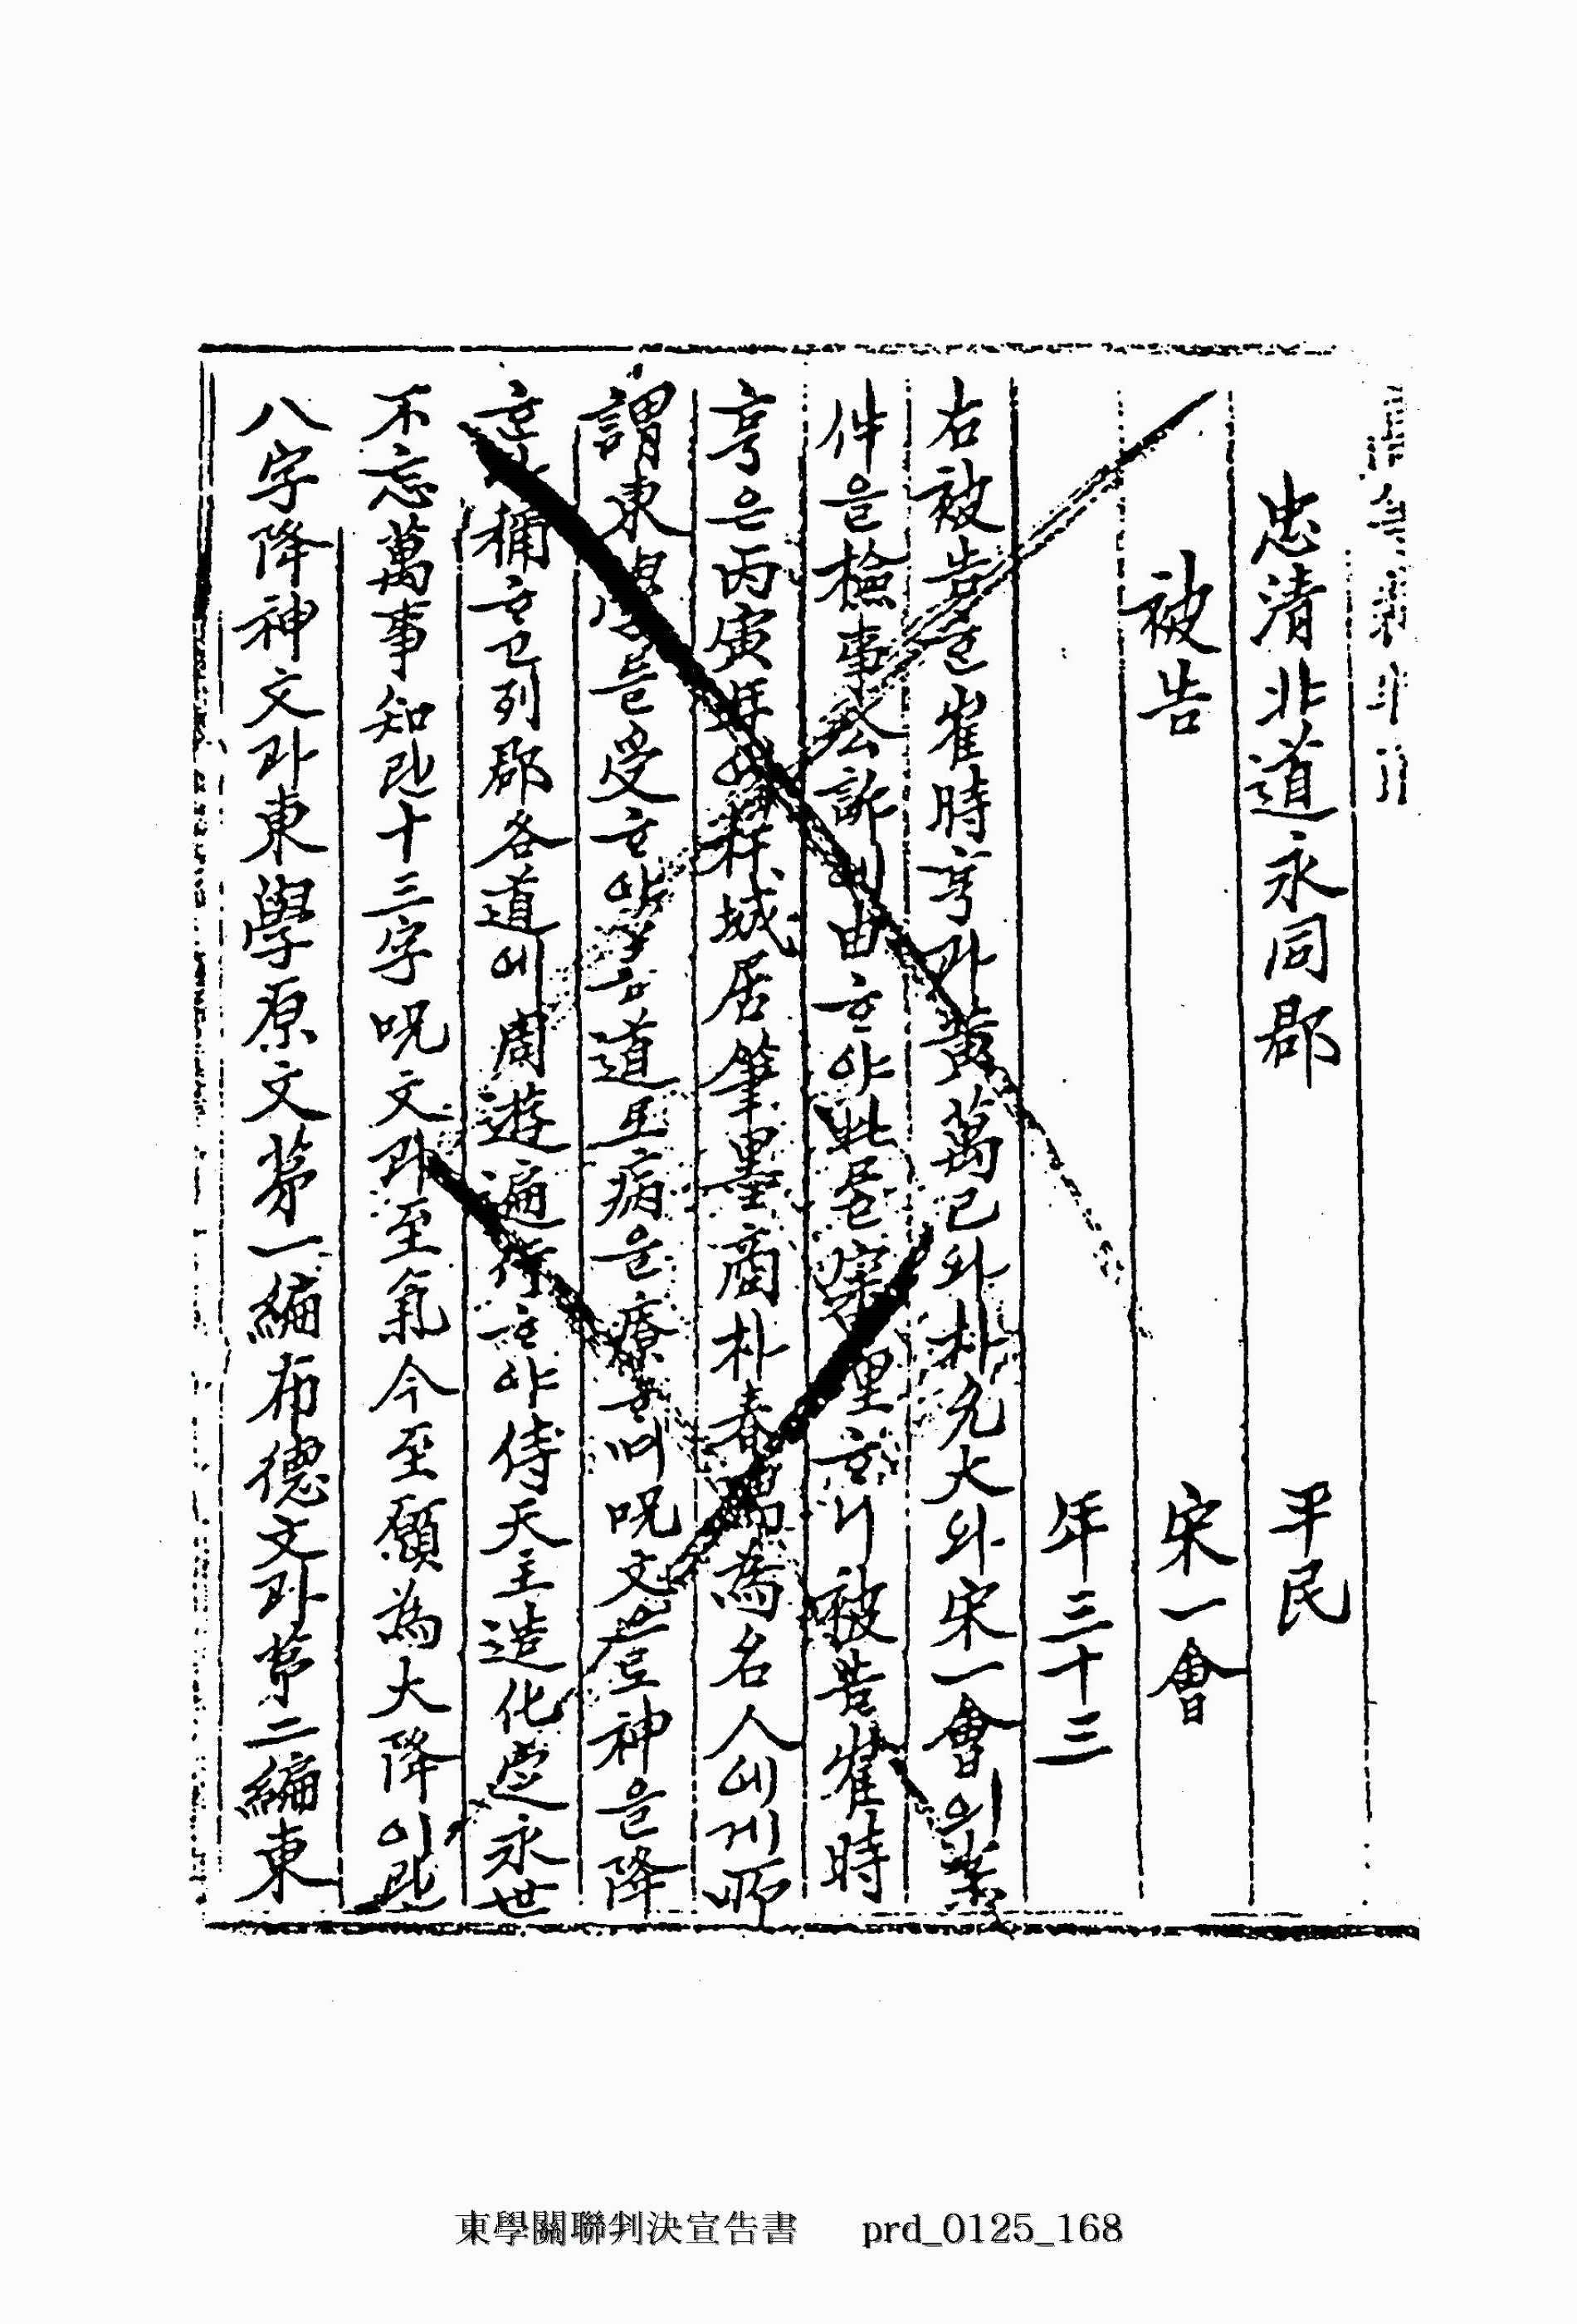 忠淸北道永同郡 平民
被告 宋一會
年三十三
右被告崔時亨과黃萬己와朴允大와宋一會의案
件을檢事公訴에由ᄒᆞ야此를審理ᄒᆞ니被告崔時
亨은丙寅年에杆城居筆墨商朴春瑞為名人에게所
謂東學을受ᄒᆞ야善道로病을療ᄒᆞ며呪文으로神을降
ᄒᆞᆫ다稱ᄒᆞ고列郡各道에周遊遍行ᄒᆞ야侍天主造化定永世
不忘萬事知란十三字呪文과至氣今至願為大降이란
八字降神文과東學原文第一編布德文과第二編東
東學關聯判決宣告書 prd_0125_168